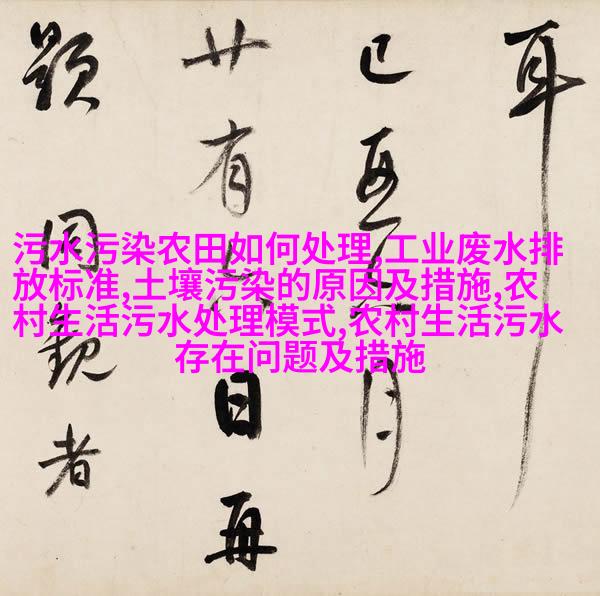 污水污染农田如何处理,工业废水排
放标准,土壤污染的原因及措施,农
村生活污水处理模式,农村生活污水
存在问题及措施
耳
已月
廿有日再
題同觀者